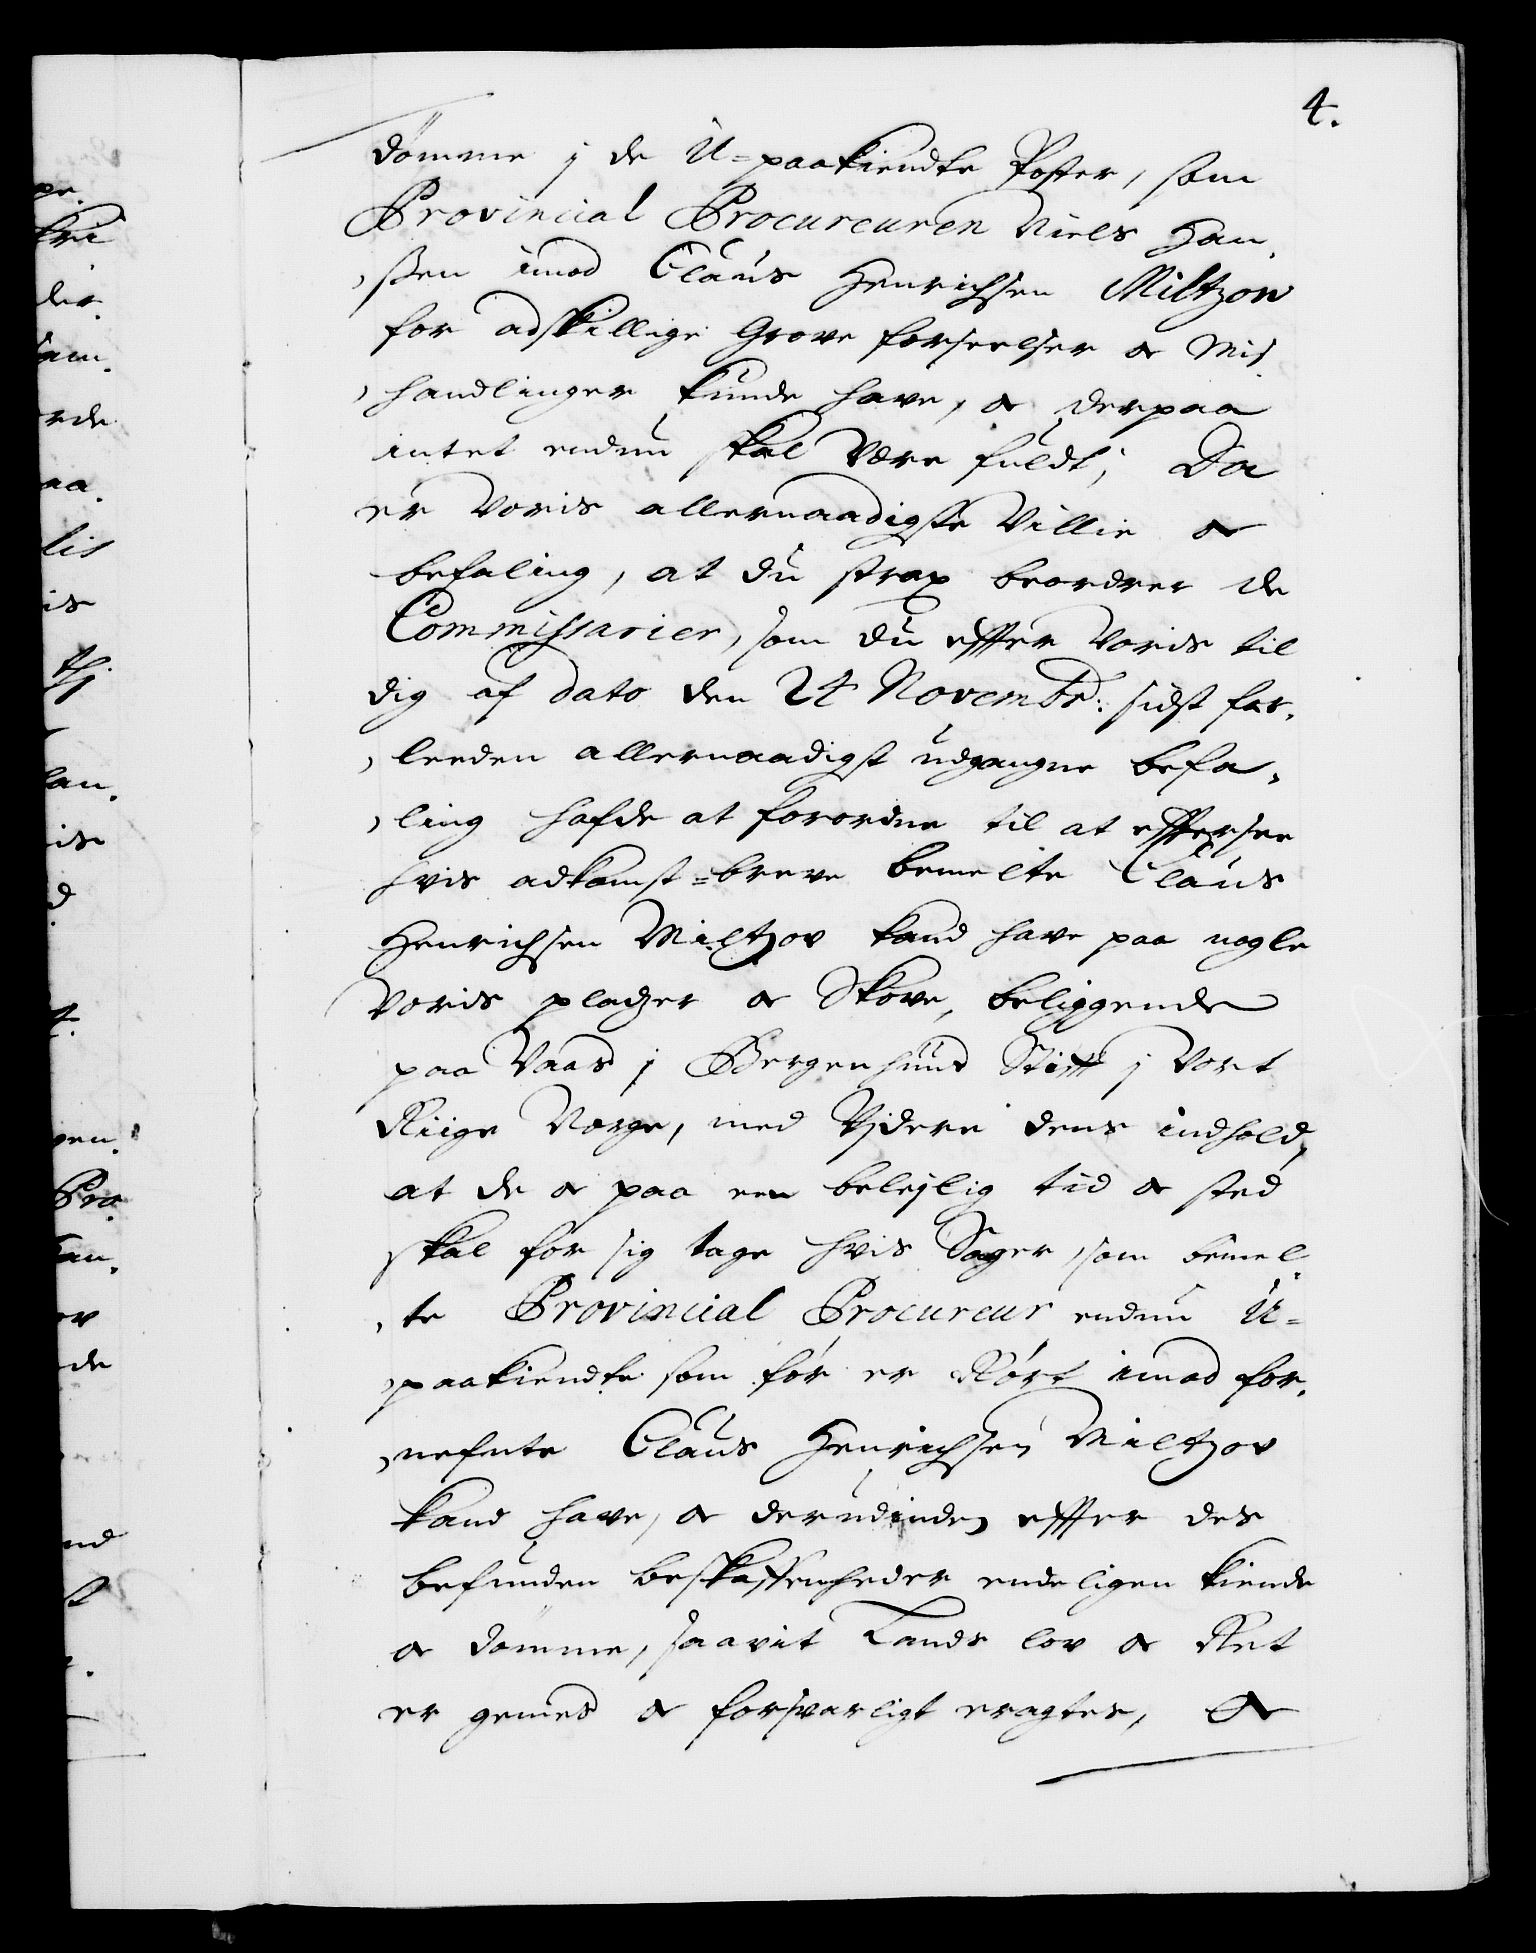 4.
dömme j de U=paakiendte Poster, som
Provincial Procureuren Niels Han-
sen imod Claus Henrichsen Miltzow
for adskillige Grove forseelser & Mis-
handlinger kunde have, & derpaa
intet endnu skal være fuldt; Da
er Voris allernaadigste Villie &
befaling, at du strax beordrer de
Commissarier, som du effter Voris til
dig af dato den 24 Novembr: sidst for-
leeden allernaadigst udgangne befa-
ling hafde at forordne til at effterse
hvis adkomst=breve bemelte Claus
Henrichsen Miltzov kand have paa nogle
Voris pladzer & Skove, beliggende
paa Vaas j Bergenhuus Stifft j Vort
Riige Norge, med Vjdere dens indhold,
at de & paa een belejlig tid & sted
skal for sig tage hvis Sager, som bemel-
te Provincial Procureur endnu U=
paakiendte som för er Rört imod for-
nefnte Claus Henrichsen Miltzov
kand have, & derudinden effter des
befunden beskaffenheder endeligen kiende
& dömme, saavit Lands lov & Ret
er gemes & forsvarligt eragtes, &